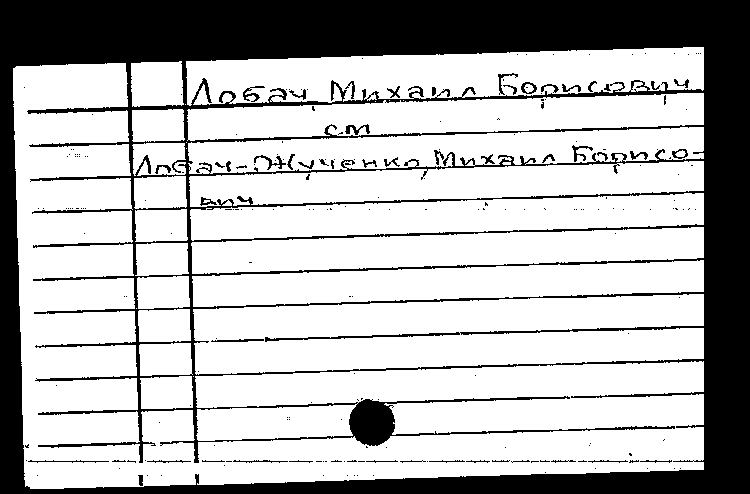 Лобач, Михаил Борисович
см
Лобач-Жученко, Михаил Борисо-
вич